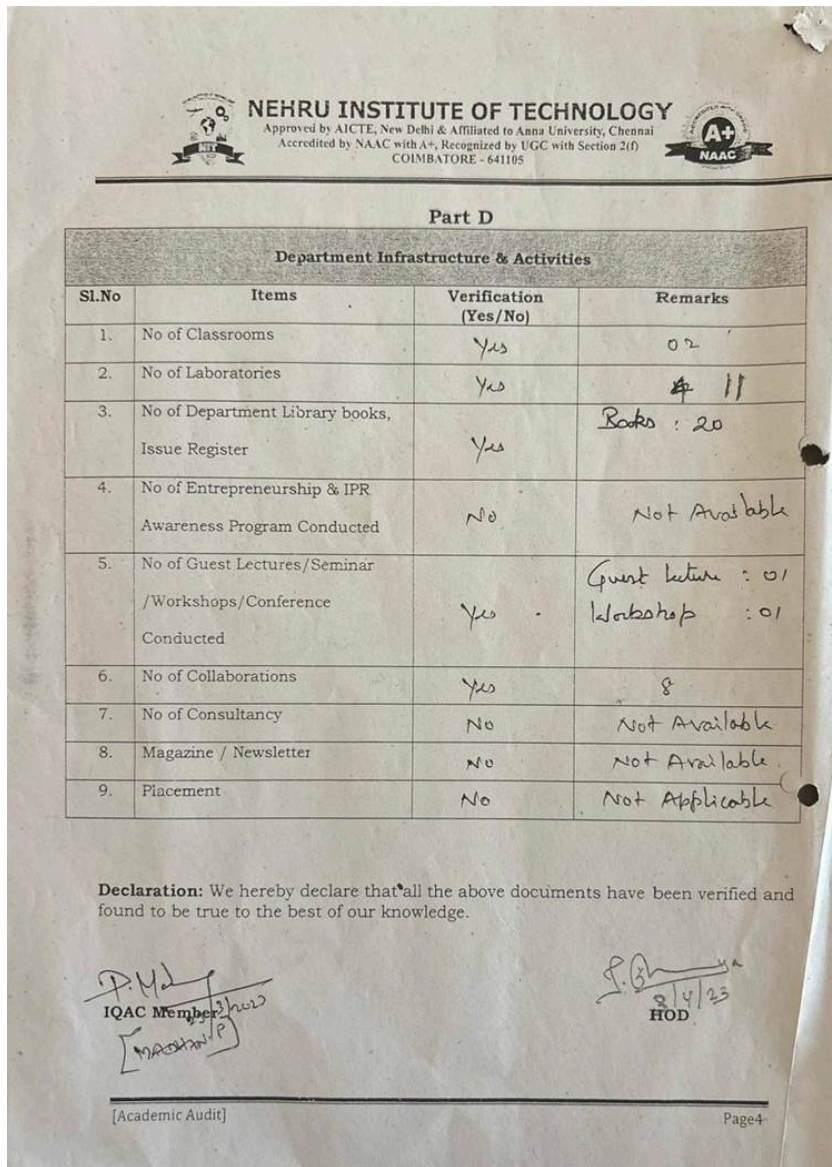 NEHRU INSTITUTE OF TECHNOLOGY
Approved by AICTE, New Delhi & Affiliated to Anna University, Chennai
Accredited by NAAC with A+, Recognized by UGC with Section 2(f)
COIMBATORE - 641105
NIT
A+
NAAC
Part D
Department Infrastructure & Activities
Sl.No Items Verification (Yes/No) Remarks
1. No of Classrooms Yes 02
2. No of Laboratories Yes 11
3. No of Department Library books, Yes Books : 20
Issue Register
4. No of Entrepreneurship & IPR No Not Available
Awareness Program Conducted
5. No of Guest Lectures/Seminar Yes Guest Lecture : 01
/Workshops/Conference Workshop : 01
Conducted
6. No of Collaborations Yes 8
7. No of Consultancy No Not Available
8. Magazine / Newsletter No Not Available.
9. Placement No Not Applicable
Declaration: We hereby declare that all the above documents have been verified and
found to be true to the best of our knowledge.
IQAC Member
[MADHAN.P]
8/4/23
HOD
[Academic Audit] Page4